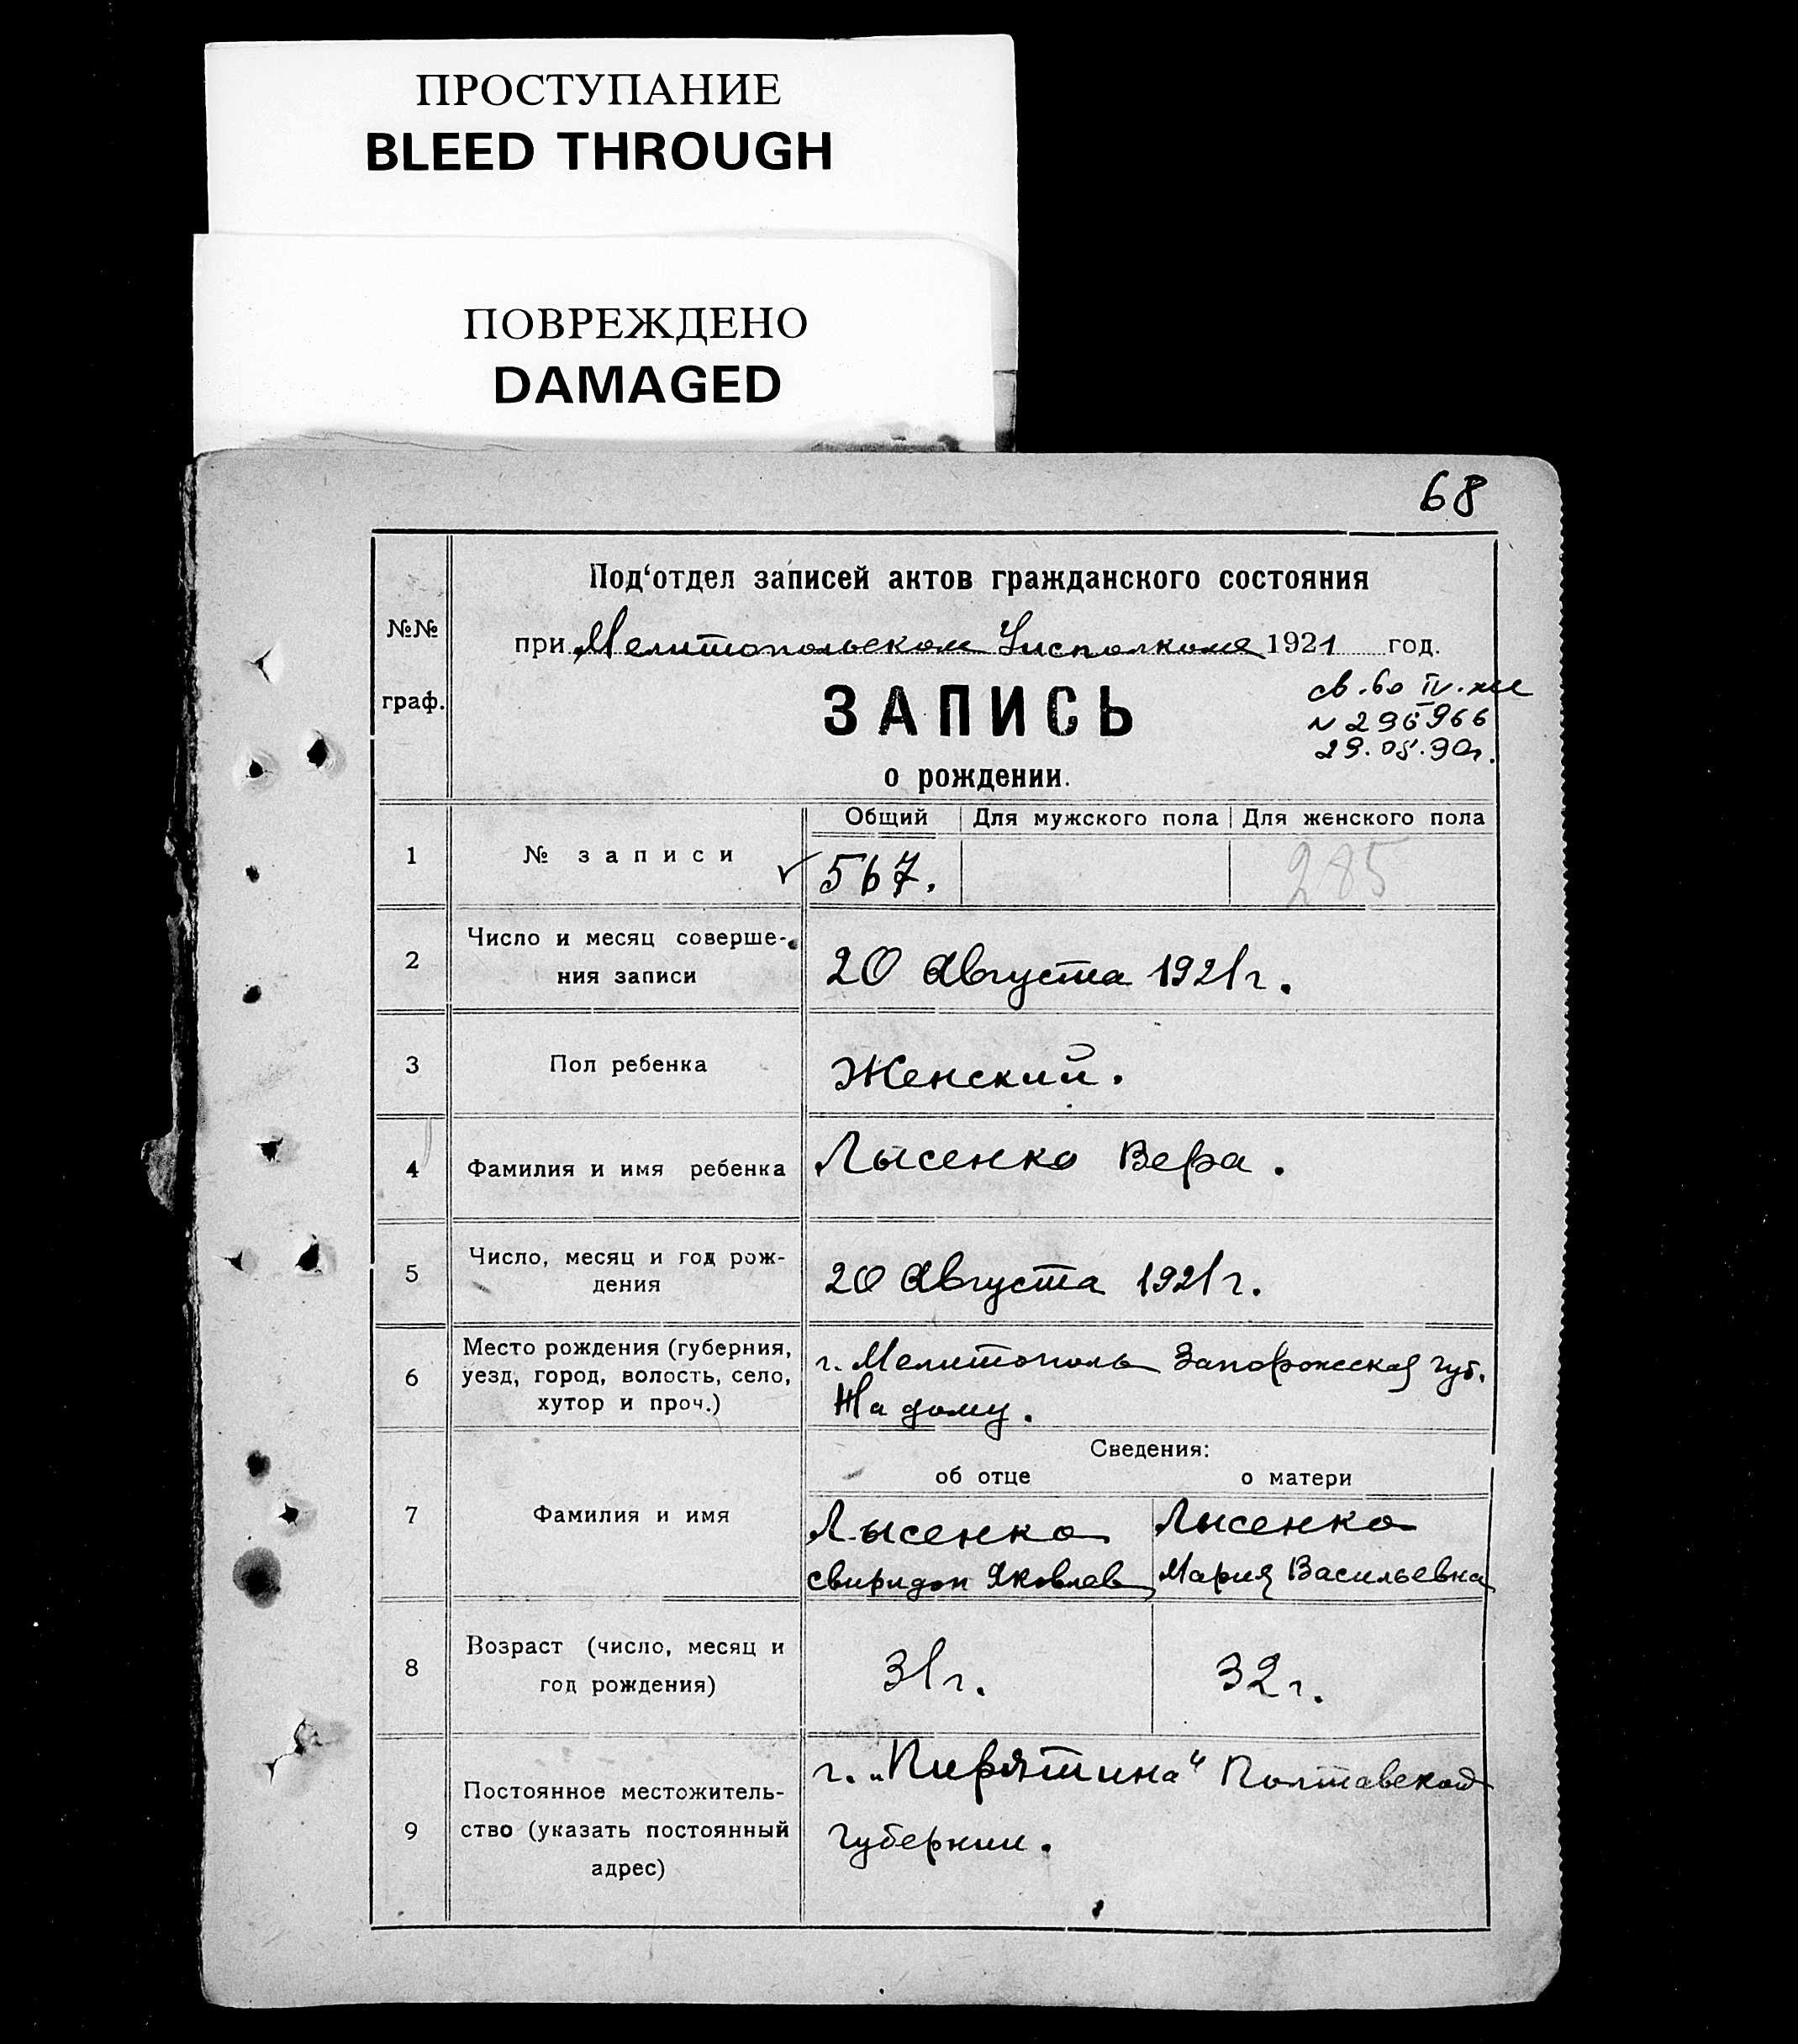 ПРОСТУПАНИЕ
BLEED THROUGH
ПОВРЕЖДЕНО
DAMAGED
68
№№
граф.
Под‘отдел записей актов гражданского состояния
при Мелитопольском Уисполкоме 1921 год.
ЗАПИСЬ
о рождении.
св.-во IV-жс
N 296966
29.05.90г.
Общий Для мужского пола Для женского пола
1 № записи 567. 285
2 Число и месяц соверше-
ния записи
20 Августа 1921 г.
3 Пол ребенка Женский.
4 Фамилия и имя ребенка Лысенко Вера.
5 Число, месяц и год рож-
дения
20 Августа 1921 г.
6 Место рождения (губерния,
уезд, город, волость, село,
хутор и проч.)
г. Мелитополь Запорожская губ.
На дому.
Сведения:
об отце о матери
7 Фамилия и имя
Лысенко Лысенко
Свиридон Яковлев Мария Васильевна
8 Возраст (число, месяц и
год рождения)
31 г. 32 г.
9 Постоянное местожитель-
ство (указать постоянный
адрес)
г. „Пирятина“ Полтавской
Губернии.